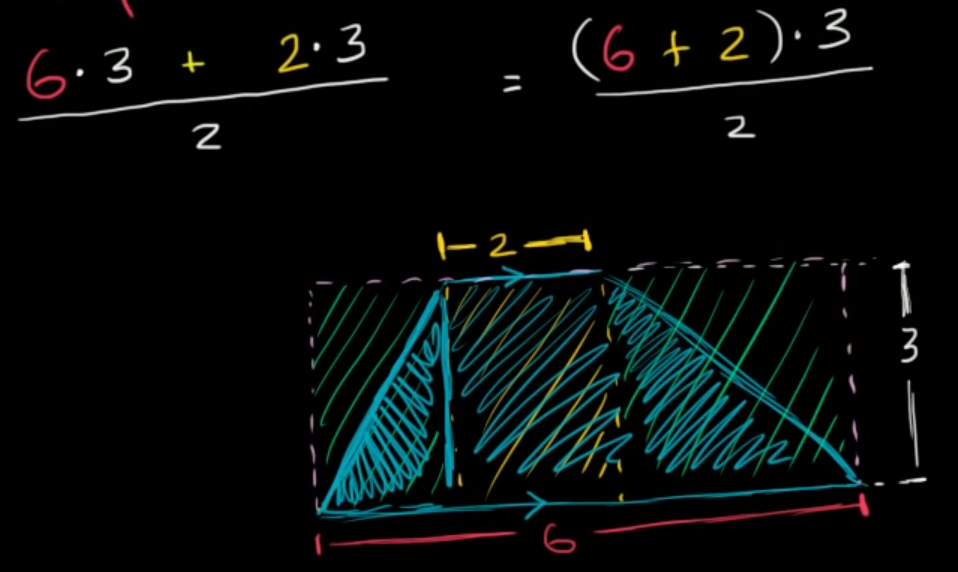 6·3 + 2·3 = (6 + 2)·3
2 2
2
3
6